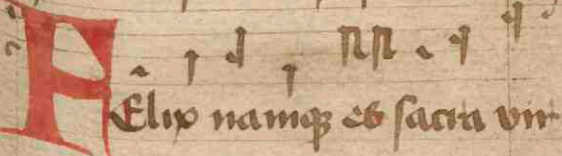 FElix namq₃ es sacra vir